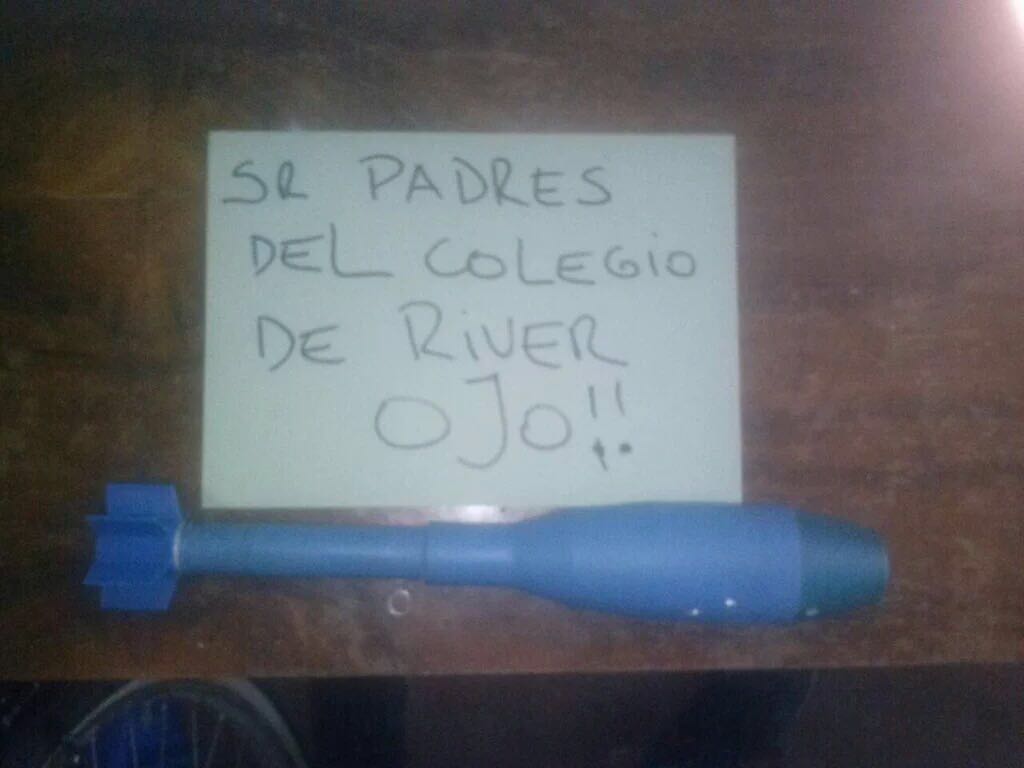 SR PADRES
DEL COLEGIO
DE RIVER
OJO!!